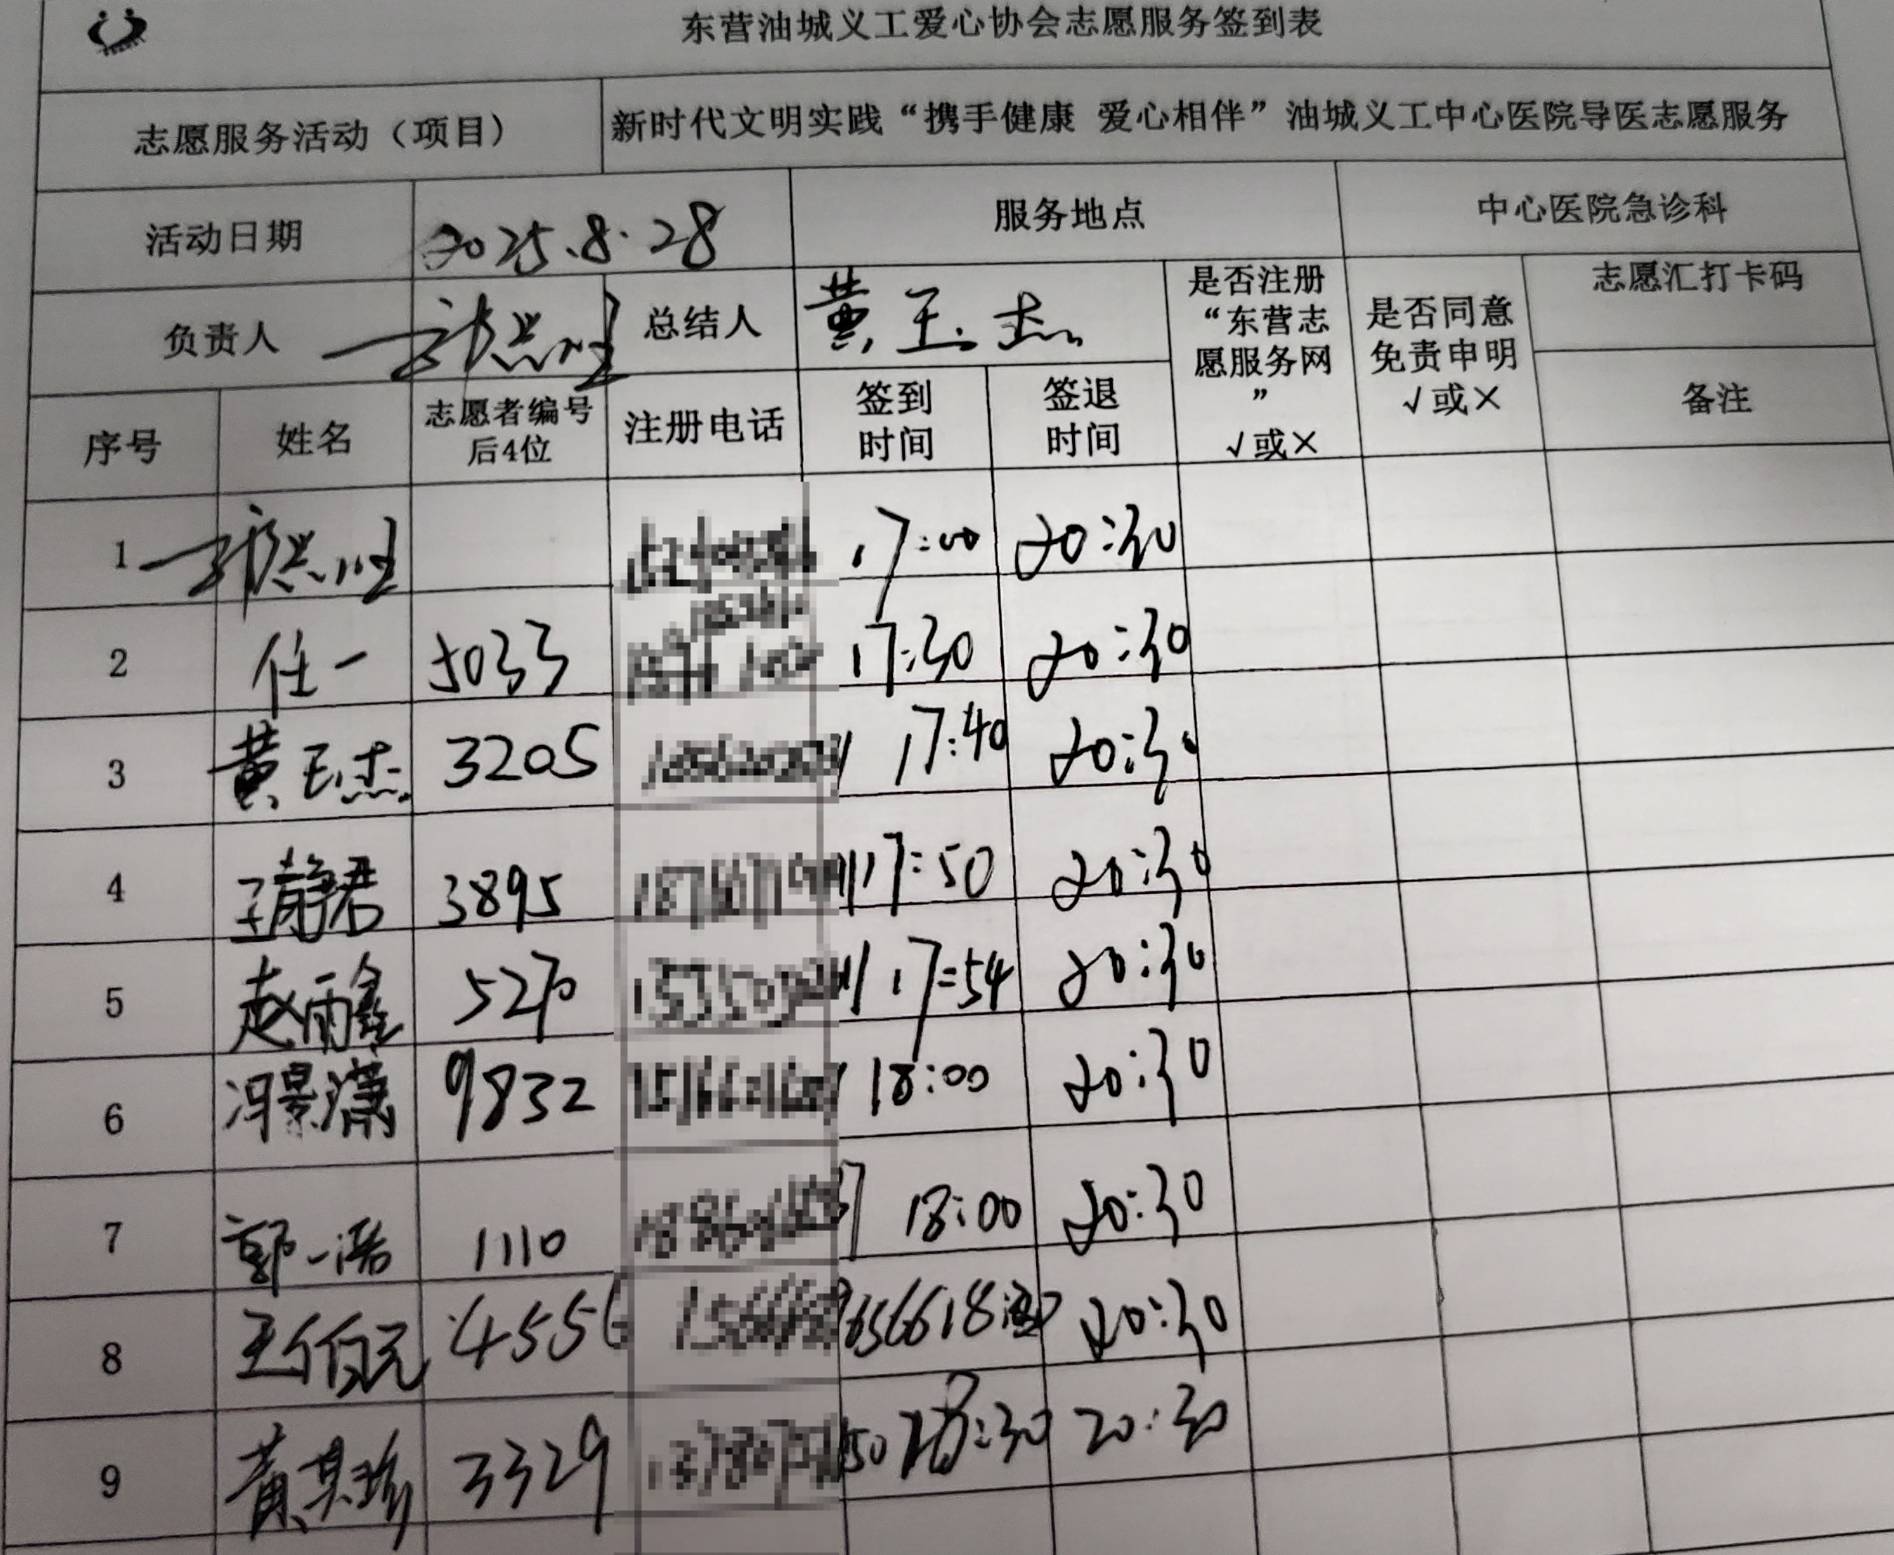 东营油城义工爱心协会志愿服务签到表
志愿服务活动（项目） 新时代文明实践“携手健康 爱心相伴”油城义工中心医院导医志愿服务
活动日期 2025.8.28 服务地点 中心医院急诊科
负责人 总结人 黄玉杰 是否注册“东营志愿服务网”√或× 是否同意免责申明√或× 志愿汇打卡码
序号 姓名 志愿者编号后4位 注册电话 签到时间 签退时间 备注
1 17:00 20:30
2 任一 5033 17:30 20:30
3 黄玉杰 3205 17:40 20:30
4 王静君 3895 17:50 20:30
5 赵雨鑫 5270 17:54 20:30
6 冯景潇 9832 18:00 20:30
7 郭一浩 1110 18:00 20:30
8 王伯元 4556 20:30
9 黄其珍 3329 20:30